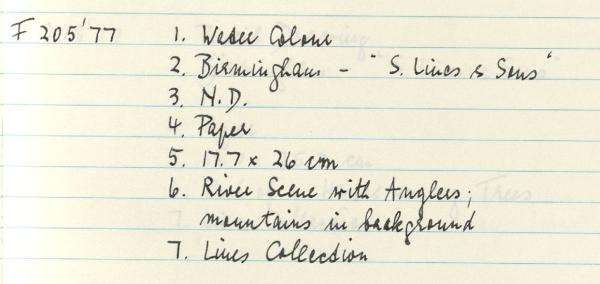 F 205'77 1. Water Colour
2. Birmingham - "S. Lines & Sons"
3. N.D.
4. Paper
5. 17.7 x 26 cm
6. River Scene with Anglers;
mountains in background
7. Lines Collection